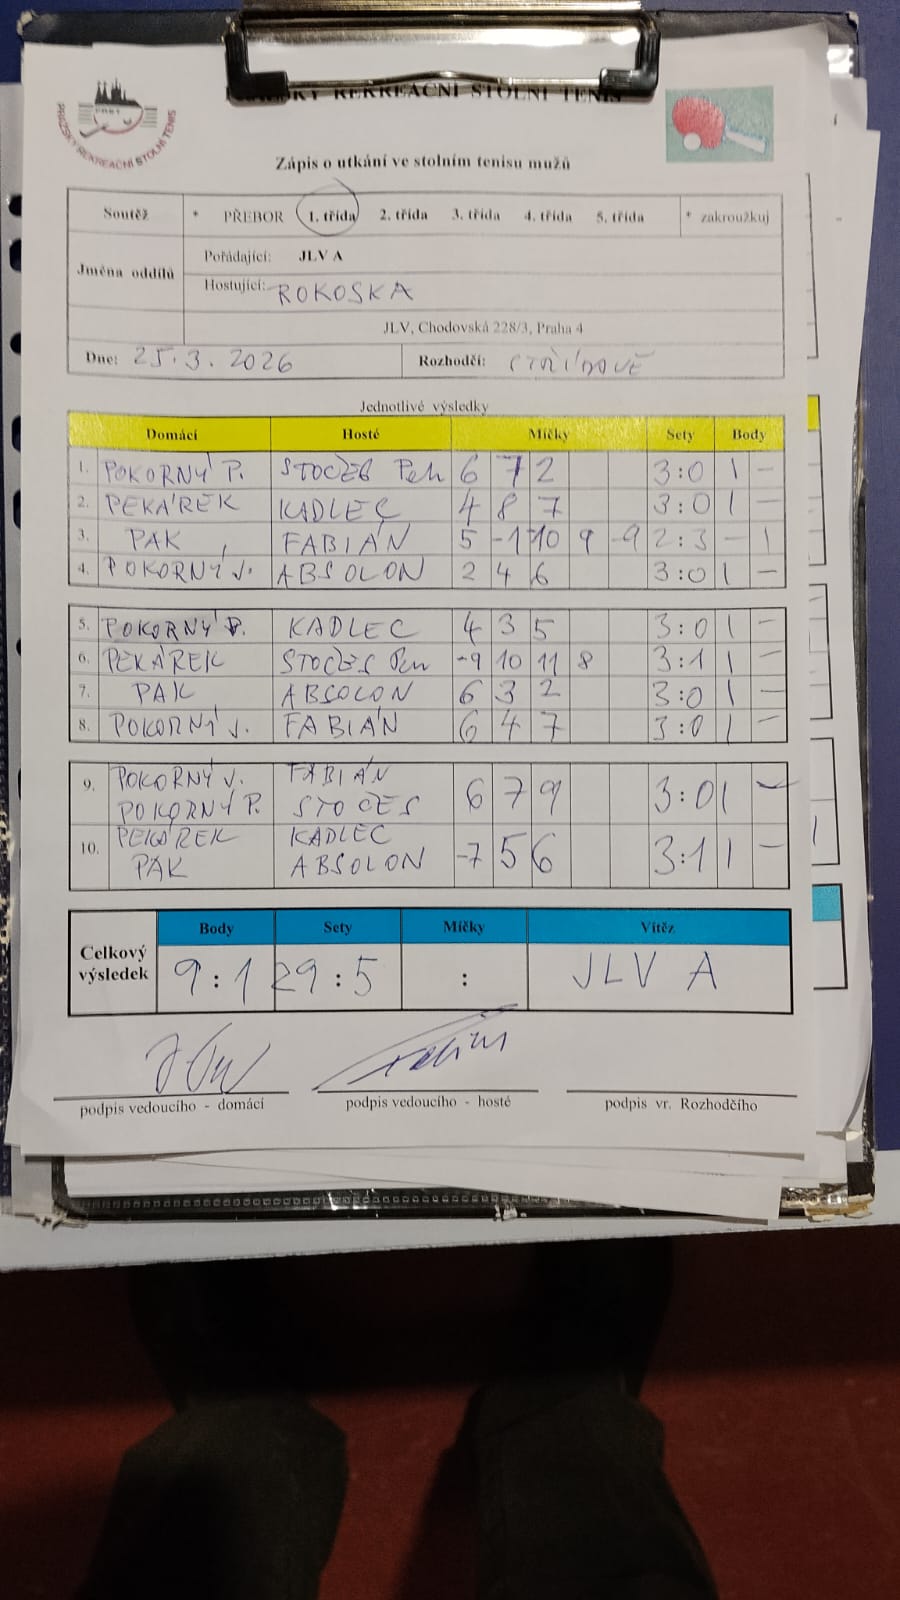 PRAŽSKÝ REKREAČNÍ STOLNÍ TENIS
PRAŽSKÝ REKREAČNÍ STOLNÍ TENIS
Zápis o utkání ve stolním tenisu mužů
Soutěž * PŘEBOR 1. třída 2. třída 3. třída 4. třída 5. třída * zakroužkuj
Jména oddílů
Pořádající: JLV A
Hostující: ROKOSKA
JLV, Chodovská 228/3, Praha 4
Dne: 25.3.2026 Rozhodčí: STŘÍDAVĚ
Jednotlivé výsledky
Domácí Hosté Míčky Sety Body
1. POKORNÝ P. STOČES Petr 6 7 2 3:0 1 -
2. PEKÁREK KADLEC 4 8 7 3:0 1 -
3. PAK FABIÁN 5 -1 10 9 -9 2:3 - 1
4. POKORNÝ J. ABSOLON 2 4 6 3:0 1 -
5. POKORNÝ P. KADLEC 4 3 5 3:0 1 -
6. PEKÁREK STOČES Petr -9 10 11 8 3:1 1 -
7. PAK ABSOLON 6 3 2 3:0 1 -
8. POKORNÝ J. FABIÁN 6 4 7 3:0 1 -
9. POKORNÝ J. FABIÁN
POKORNÝ P. STOČES 6 7 9 3:0 1 -
10. PEKÁREK KADLEC
PAK ABSOLON -7 5 6 3:1 1 -
Body Sety Míčky Vítěz
Celkový výsledek 9:1 29:5 : JLV A
podpis vedoucího - domácí podpis vedoucího - hosté podpis vr. Rozhodčího